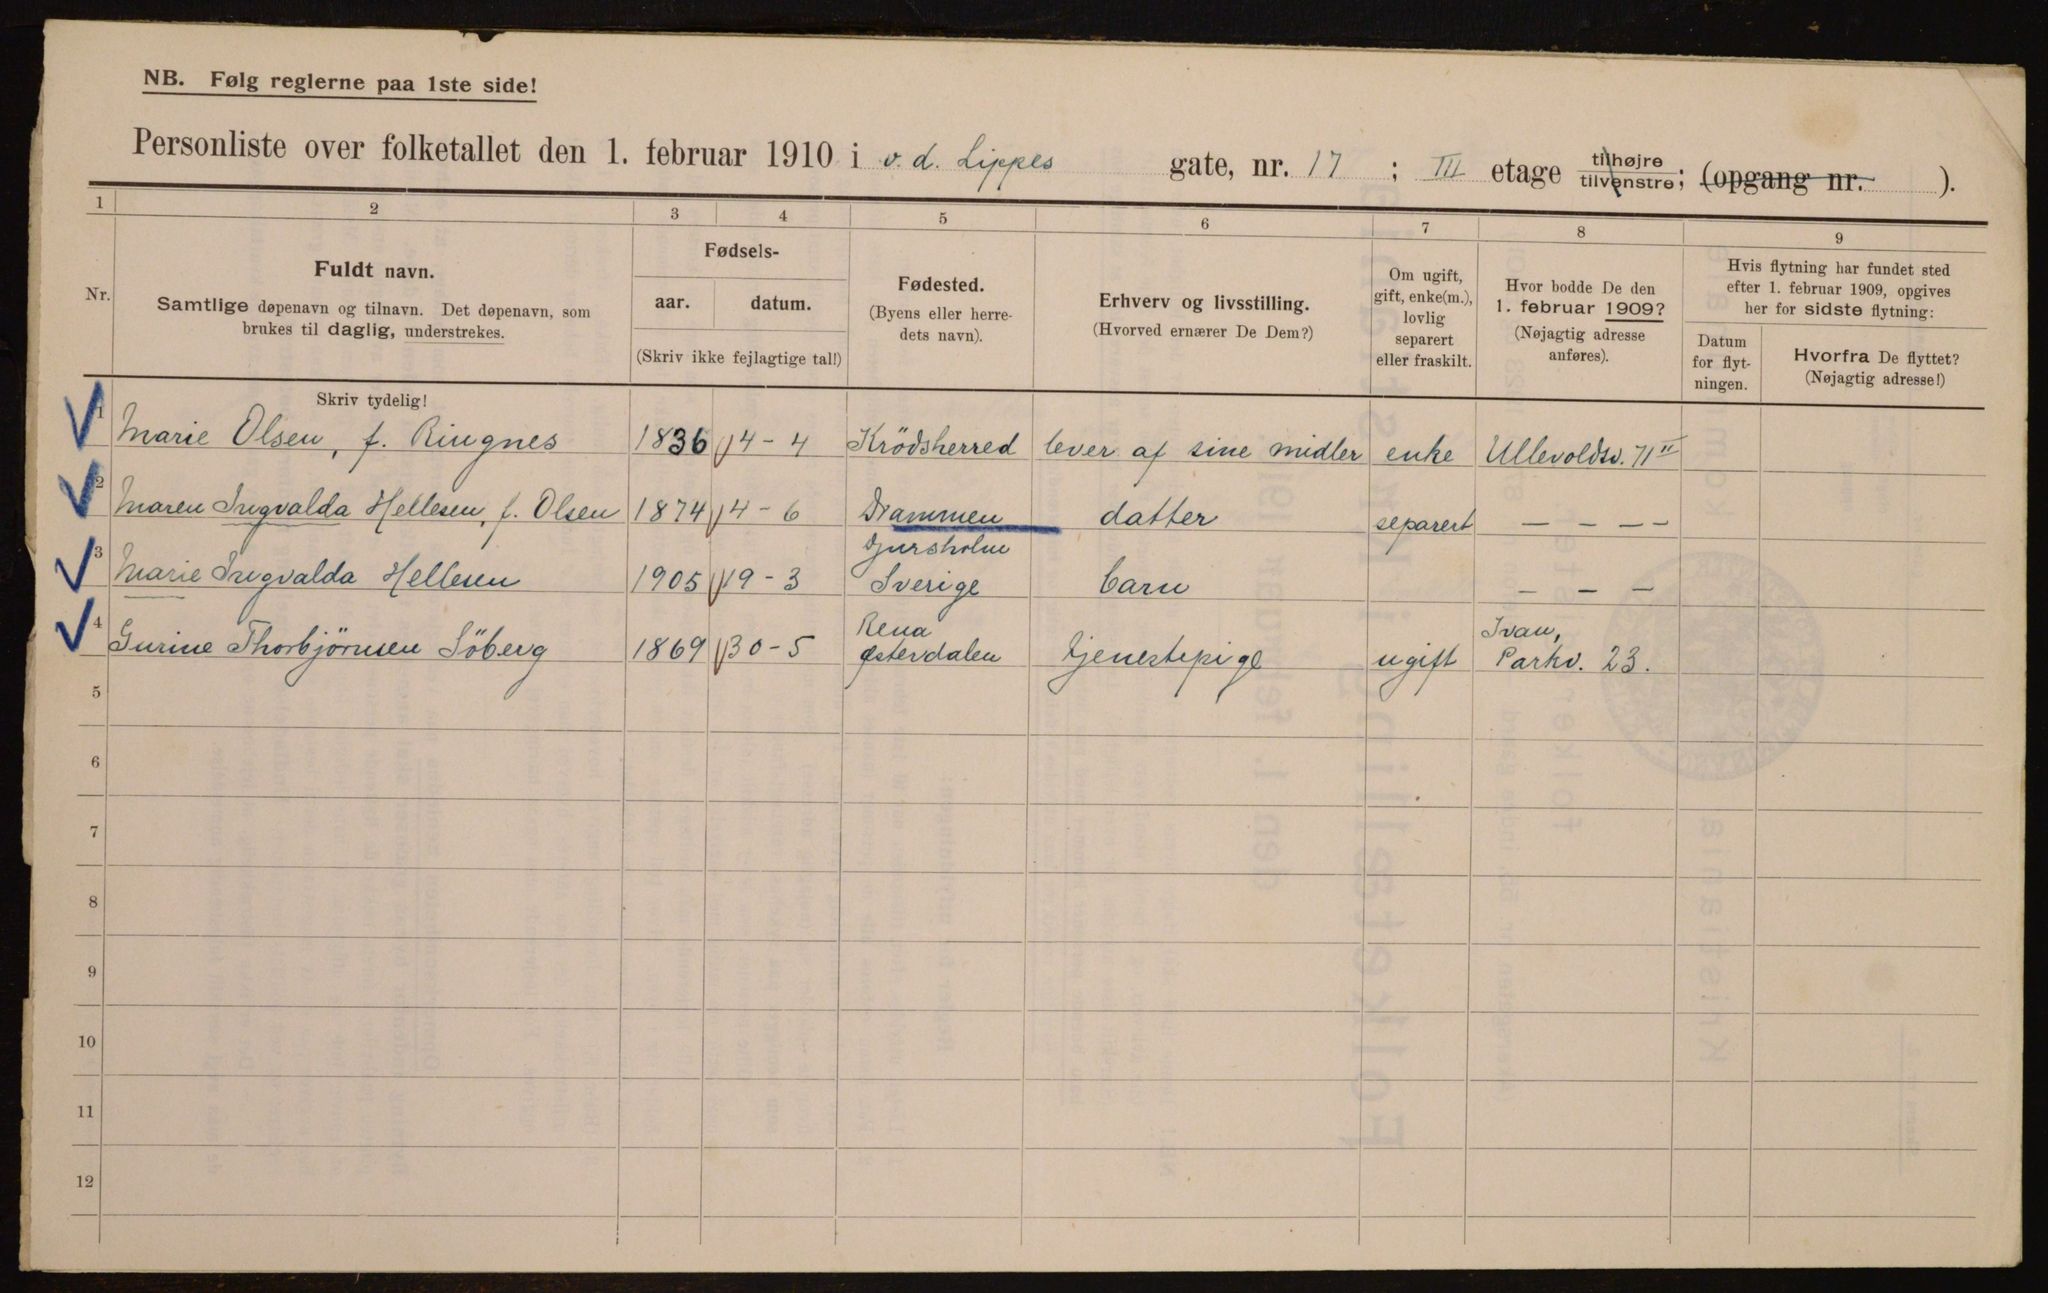 NB. Følg reglerne paa 1ste side!
Personliste over folketallet den 1. februar 1910 i v. d. Lippes gate, nr. 17 ; III etage tilhøjre / tilvenstre; (opgang nr. ).
1 2 3 4 5 6 7 8 9
Nr.
Fuldt navn.
Samtlige døpenavn og tilnavn. Det døpenavn, som
brukes til daglig, understrekes.
Skriv tydelig!
Fødsels-
aar. datum.
(Skriv ikke fejlagtige tal!)
Fødested.
(Byens eller herre-
dets navn).
Erhverv og livsstilling.
(Hvorved ernærer De Dem?)
Om ugift,
gift, enke(m.),
lovlig
separert
eller fraskilt.
Hvor bodde De den
1. februar 1909?
(Nøjagtig adresse
anføres).
Hvis flytning har fundet sted
efter 1. februar 1909, opgives
her for sidste flytning:
Datum
for flyt-
ningen.
Hvorfra De flyttet?
(Nøjagtig adresse!)
1 Marie Olsen, f. Ringnes 1836 4-4 Krödsherred lever af sine midler enke Ullevoldsv. 71 II
2 Maren Ingvalda Hellesen, f. Olsen 1874 4-6 Drammen datter separert — — — —
3 Marie Ingvalda Hellesen 1905 19-3 Djursholm Sverige barn — — —
4 Gurine Thorbjörnsen Söberg 1869 30-5 Rena Østerdalen tjenestepige ugift Parkv. 23.
5
6
7
8
9
10
11
12